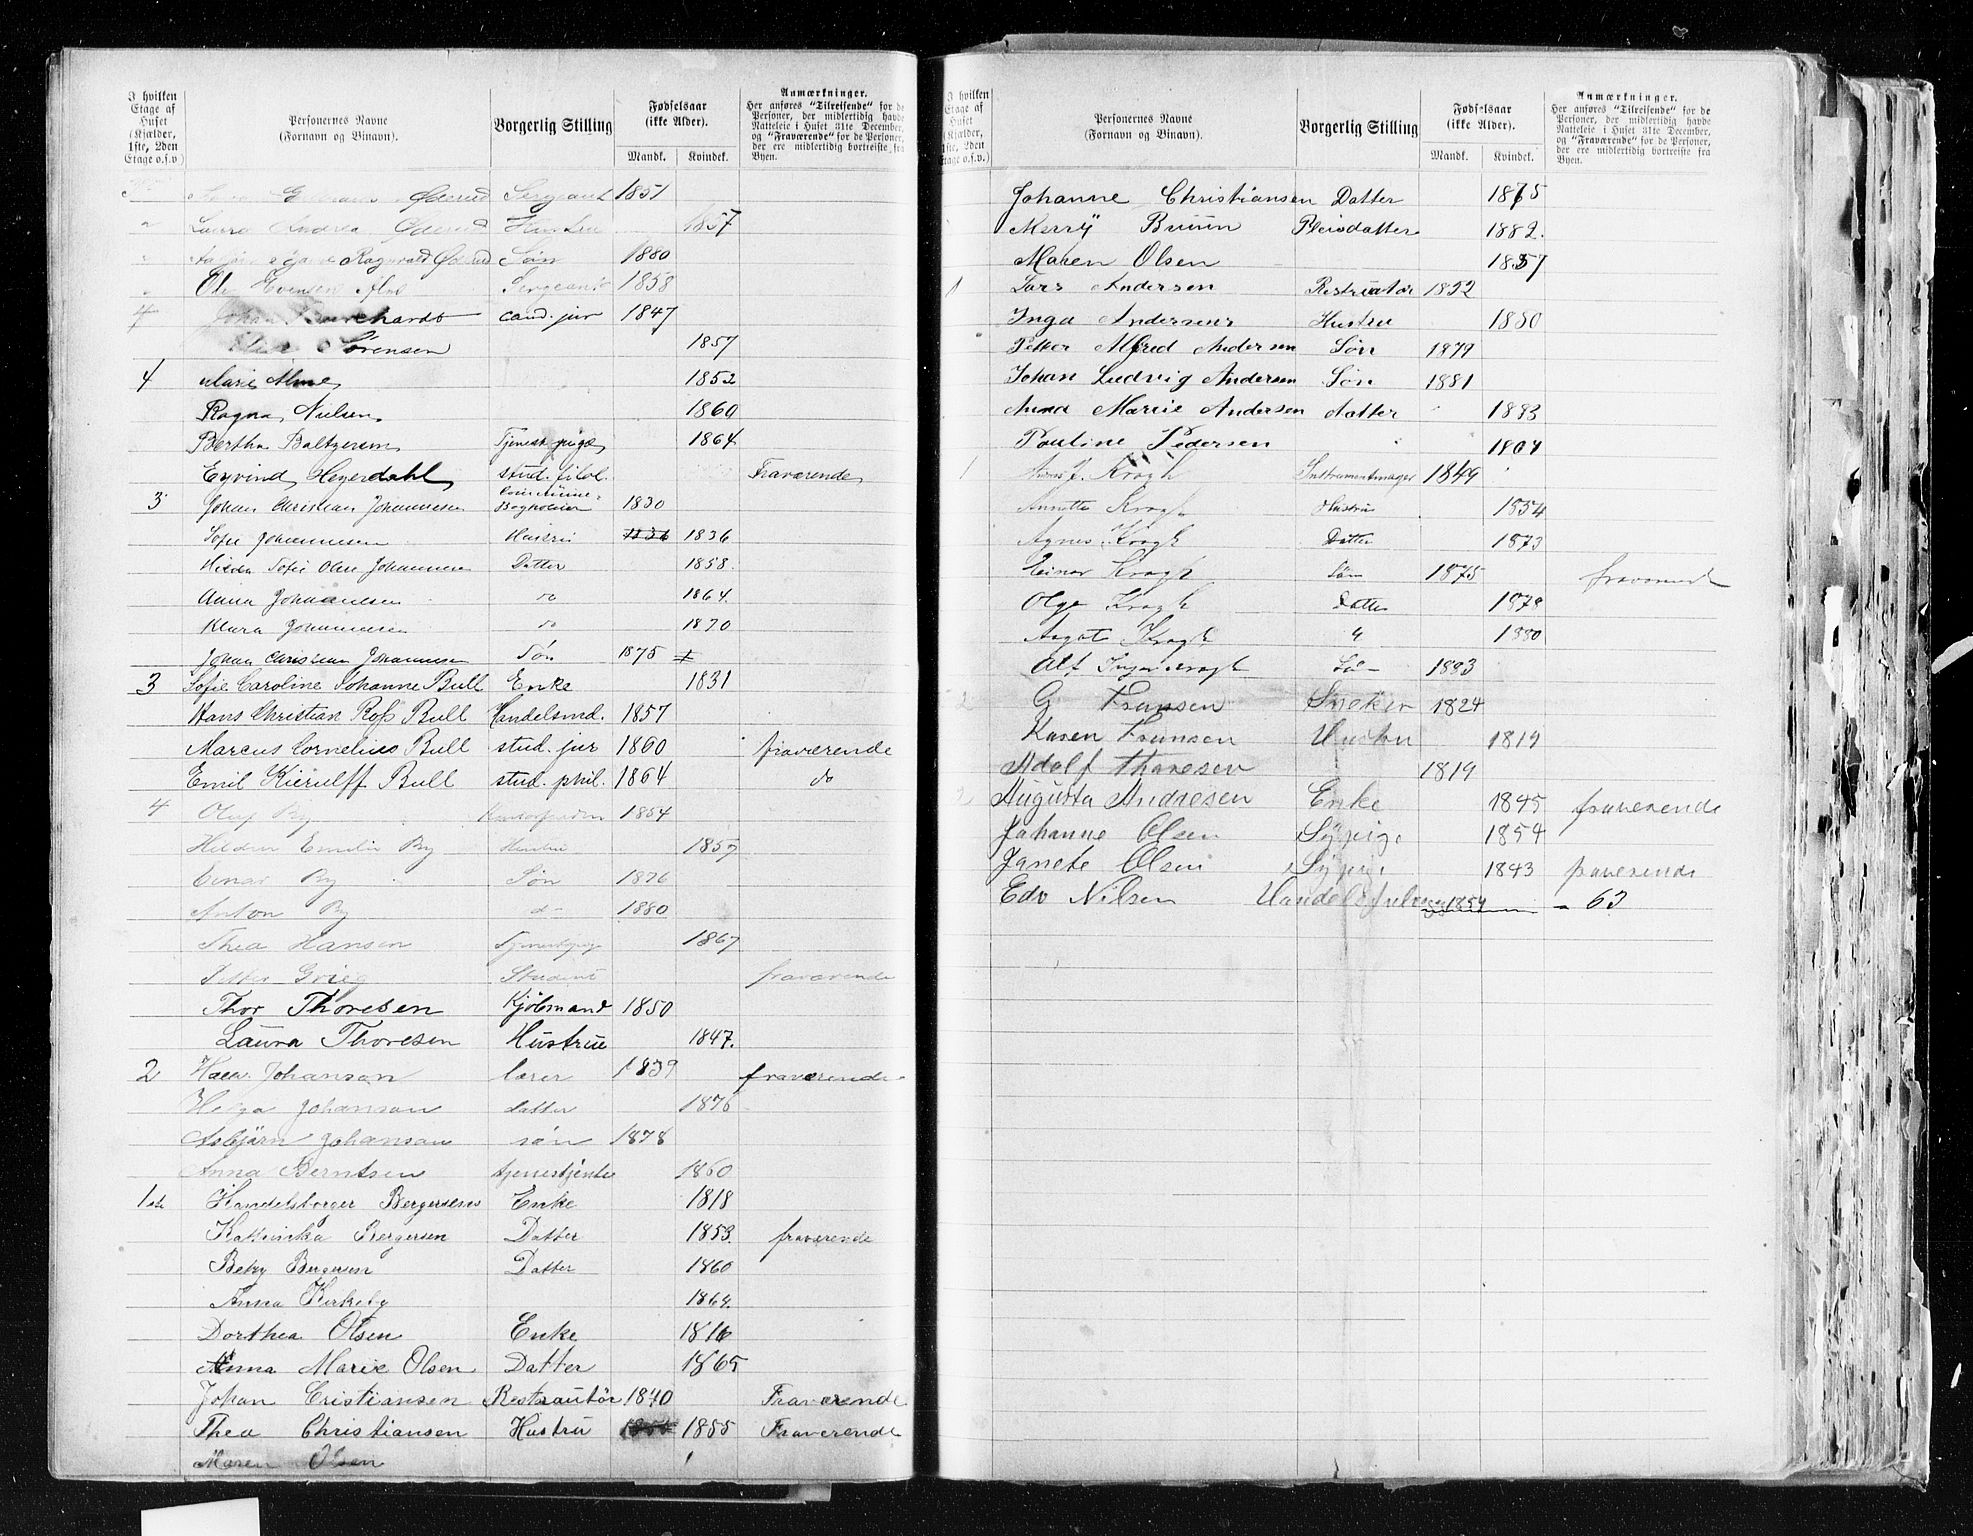 I hvilken
Etage af
Huset
(Kjælder,
1ste, 2den
Etage o.s.v)
Personernes Navne
(Fornavn og Binavn).
Borgerlig Stilling
Fødselsaar
(ikke Alder).
Mandk. Kvindek.
Anmærkninger.
Her anføres "Tilreisende" for de
Personer, der midlertidig havde
Natteleie i Huset 31te December,
og "Fraværende" for de Personer,
der ere midlertidig bortreiste fra
Byen.
Øderud Sergeant 1851
" Laura Andrea Øderud Hustru 1857
" Ragnvald Øderud Søn 1880
" Ole Evensen Sergeant 1858
4 Johan cand. jur 1847
Sörensen 1857
4 Marie 1852
Ragna Nielsen 1860
Bertha Baltzersen Tjenestepige 1864
Eyvind Heyerdahl stud. filol. Fraværende
3 Johan Christian Johannesen Bogholder 1830
Sofie Johannesen Hustru 1836 1836
Hilda Sofie Johannesen Datter 1858.
Anna Johannesen do 1864.
Klara Johannesen do 1870
Johan Christian Johannesen Søn 1875
3 Sofie Caroline Johanne Bull Enke 1831
Hans Christian Ross Bull Handelsmd. 1857
Marcus Cornelius Bull stud. jur 1860 fraværende
Emil Kierulff Bull stud. phil. 1864 do
4 Oluf By 1854
Emilie By Hustru 1857
Einar By Søn 1876
Anton By do 1880
Thea Hansen Tjenestepige 1867
Petter Grieg Student fraværende
Thor Thoresen Kjöbmand 1850
Laura Thoresen Hustrue 1847.
2 Johanson lærer 1839 fraværende
Helga Johanson datter 1876
Asbjörn Johanson søn 1878
Anna Berntsen tjenestjente 1860
1ste Handelsborger Bergersens Enke 1818
Kathinka Bergersen Datter 1853. fraværende
Betzy Bergersen Datter 1860
Anna Kirkeby 1864.
Dorthea Olsen Enke 1816
Anna Marie Olsen Datter 1865
Johan Cristiansen Restrautör 1840 Fraværende
Thea Christiansen Hustru 1855 1855 Fraverende
Maren Olsen
I hvilken
Etage af
Huset
(Kjælder,
1ste, 2den
Etage o.s.v.)
Personernes Navne
(Fornavn og Binavn).
Borgerlig Stilling
Fødselsaar
(ikke Alder).
Mandk. Kvindek.
Anmærkninger.
Her anføres "Tilreisende" for de
Personer, der midlertidig havde
Natteleie i Huset 31te December,
og "Fraværende" for de Personer,
der ere midlertidig bortreiste fra
Byen.
Johanne Christiansen Datter 1875
Merrÿ Bruun Pleisdatter 1882.
Maren Olsen 1857
1 Lars Andersen Restruatør 1852
Inga Andersens Hustru 1850
Petter Alfred Andersen Søn 1879
Johan Ludvig Andersen Søn 1881
Anna Marie Andersen datter 1883
Pauline Pedersen
1 J. Kragh Instrumentmager 1849
Annette Kragh Hustru 1854
Agnes Kragh Datter 1873
Einar Kragh Søn 1875 fraværende
Olga Kragh Datter 1878
Aagot Kragh " 1880
Alf Kragh Søn 1883
2 G Fransen Sneker 1824
Karen Fransen Hustru 1819
Adolf Thoresen 1819
2 Augusta Andresen Enke 1845 fraverende
Johanne Olsen Sÿpige 1854
Janete Olsen Sÿpige 1843 fraverende
Edv Nilsen 1854 - 63